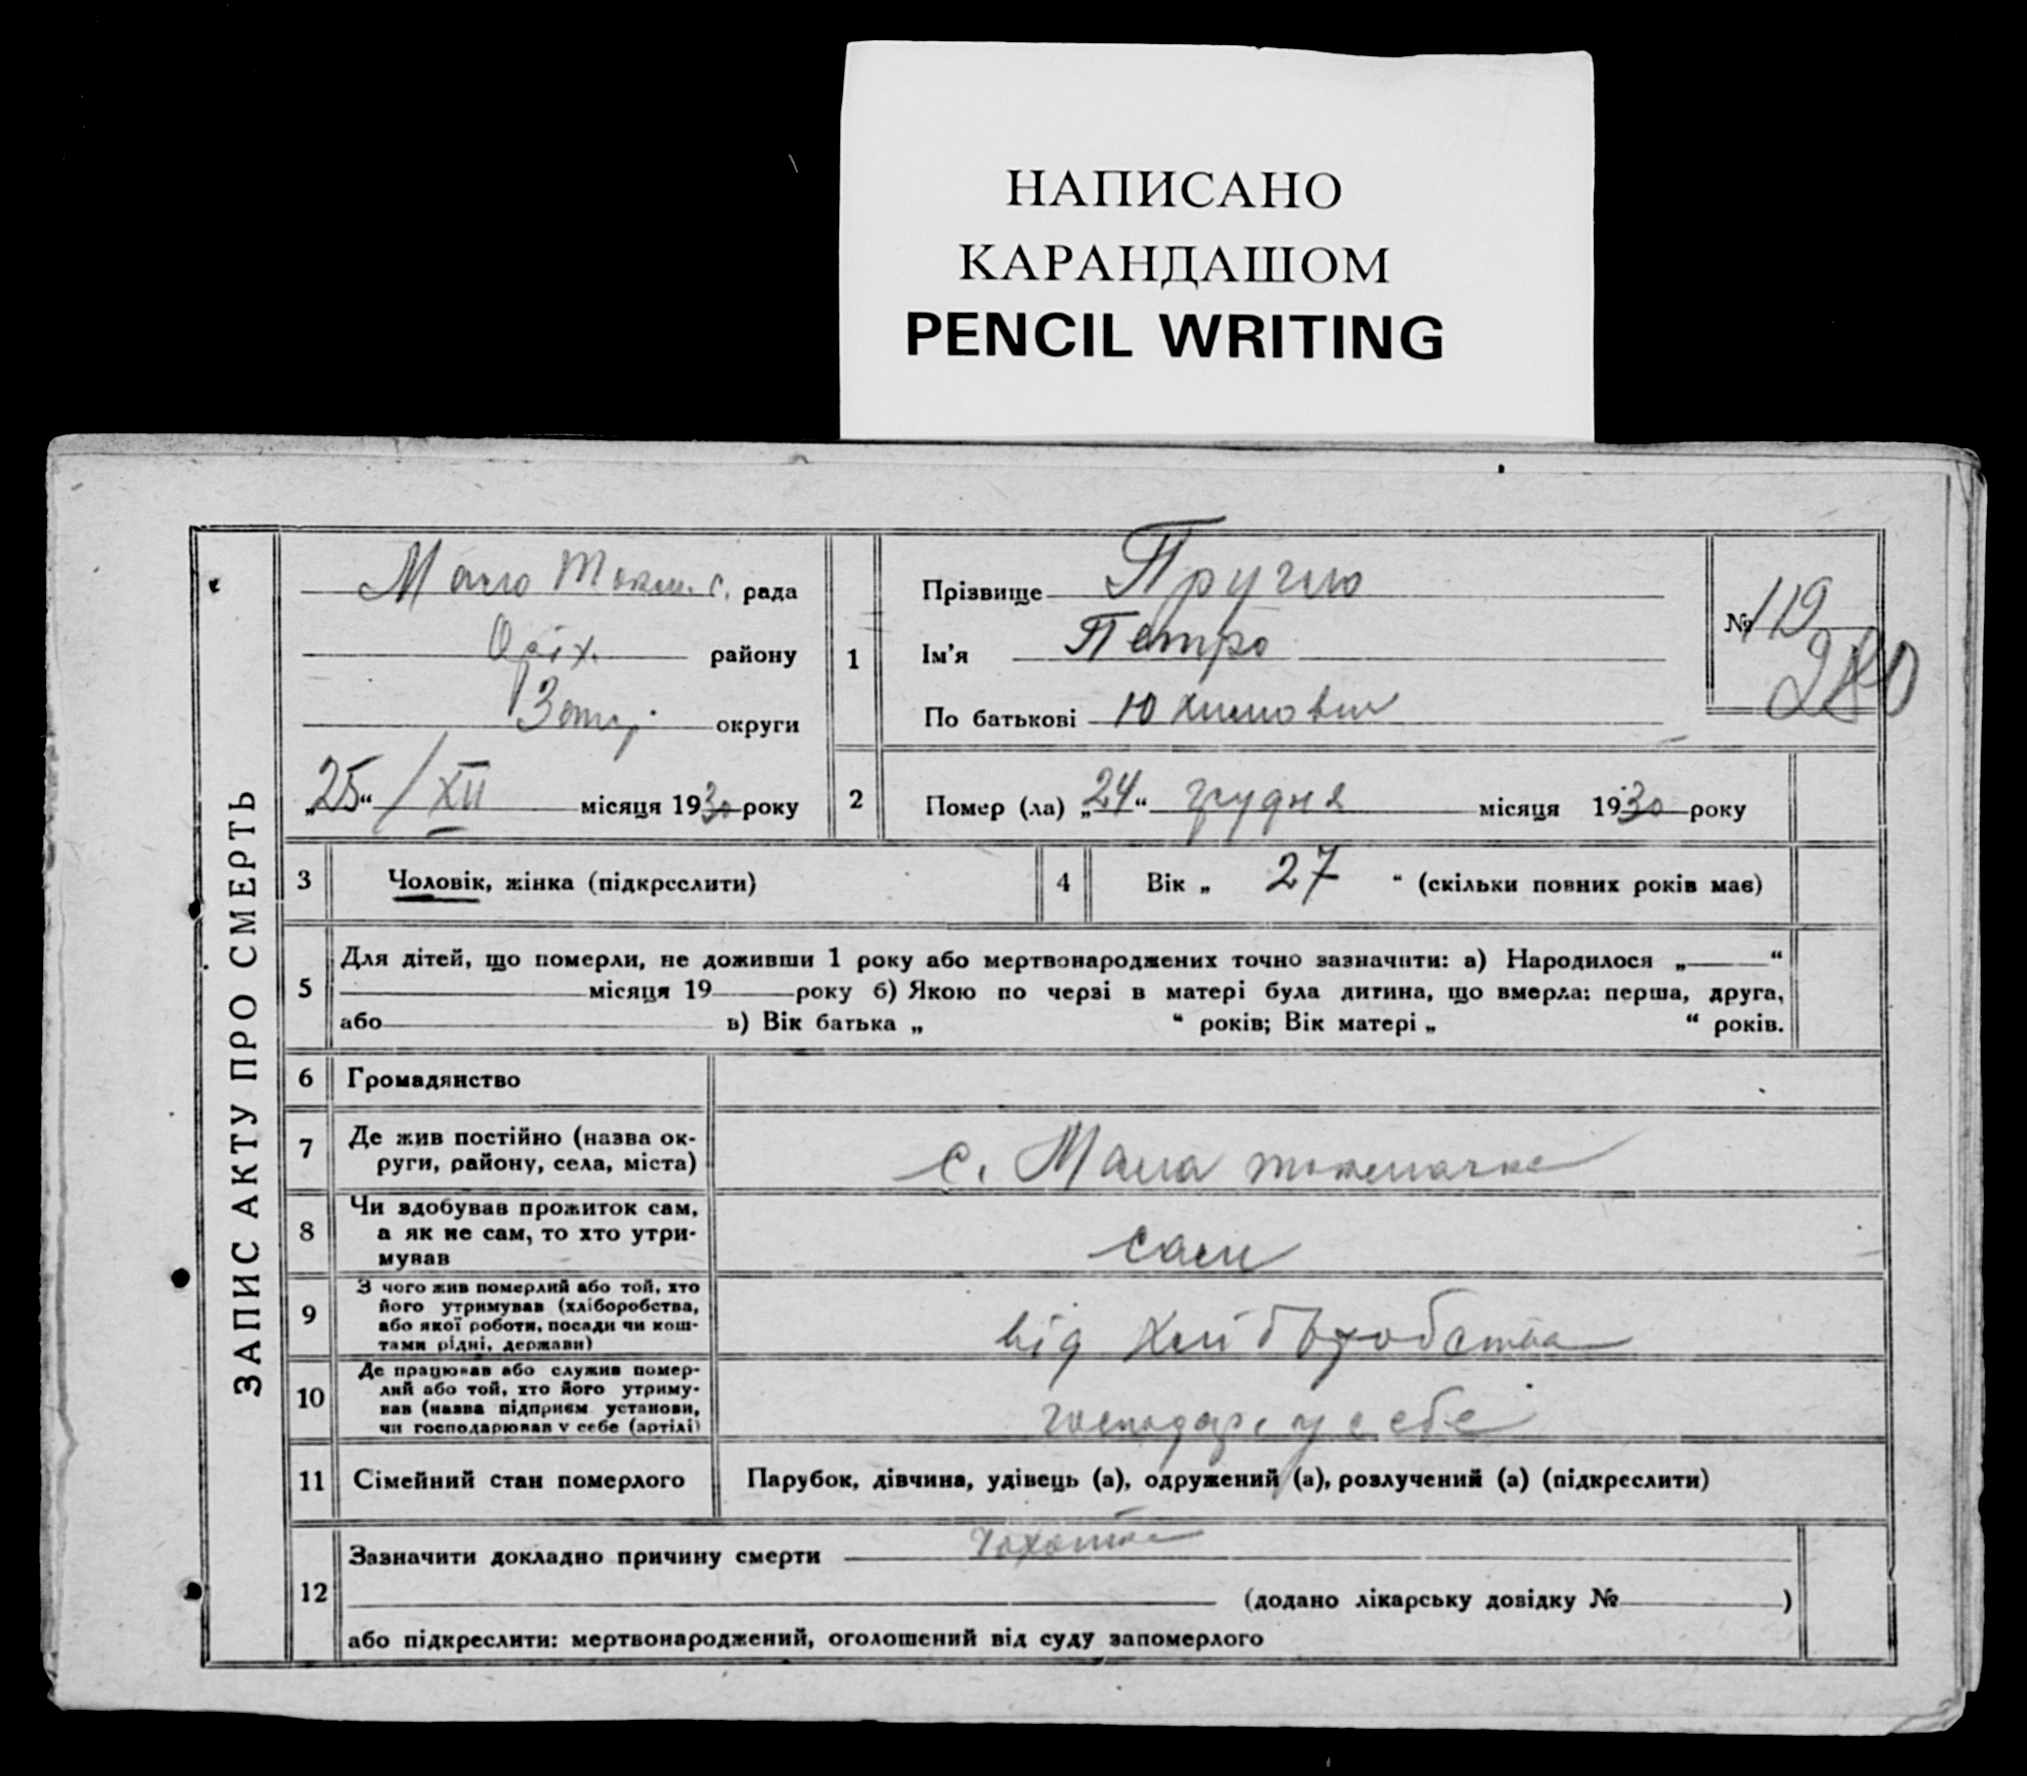 НАПИСАНО
КАРАНДАШОМ
PENCIL WRITING
ЗАПИС АКТУ ПРО СМЕРТЬ
Мало Токм. с. рада
Оріх. району
Запор. округи
„25“ / XII місяця 1930 року
1
Прізвище
Ім'я Петро
По батькові Юхимович
№ 119
280
2
Помер (ла) „24“ грудня місяця 1930 року
3
Чоловік, жінка (підкреслити)
4
Вік „ 27 “ (скільки повних років має)
5
Для дітей, що померли, не доживши 1 року або мертвонароджених точно зазначити: а) Народилося „ “
місяця 19 року б) Якою по черзі в матері була дитина, що вмерла: перша, друга,
або в) Вік батька „ “ років; Вік матері „ “ років.
6
Громадянство
7
Де жив постійно (назва ок-
руги, району, села, міста)
с. Мала токмачка
8
Чи здобував прожиток сам,
а як не сам, то хто утри-
мував
сам
9
З чого жив померлий або той, хто
його утримував (хліборобства,
або якої роботи, посади чи кош-
тами рідні, держави)
від хліборобства
10
Де працював або служив помер-
лий або той, хто його утриму-
вав (назва підприєм установи,
чи господарював у себе (артілі)
господар. у себе
11
Сімейний стан померлого
Парубок, дівчина, удівець (а), одружений (а), розлучений (а) (підкреслити)
12
Зазначити докладно причину смерти чахотка
(додано лікарську довідку № )
або підкреслити: мертвонароджений, оголошений від суду запомерлого